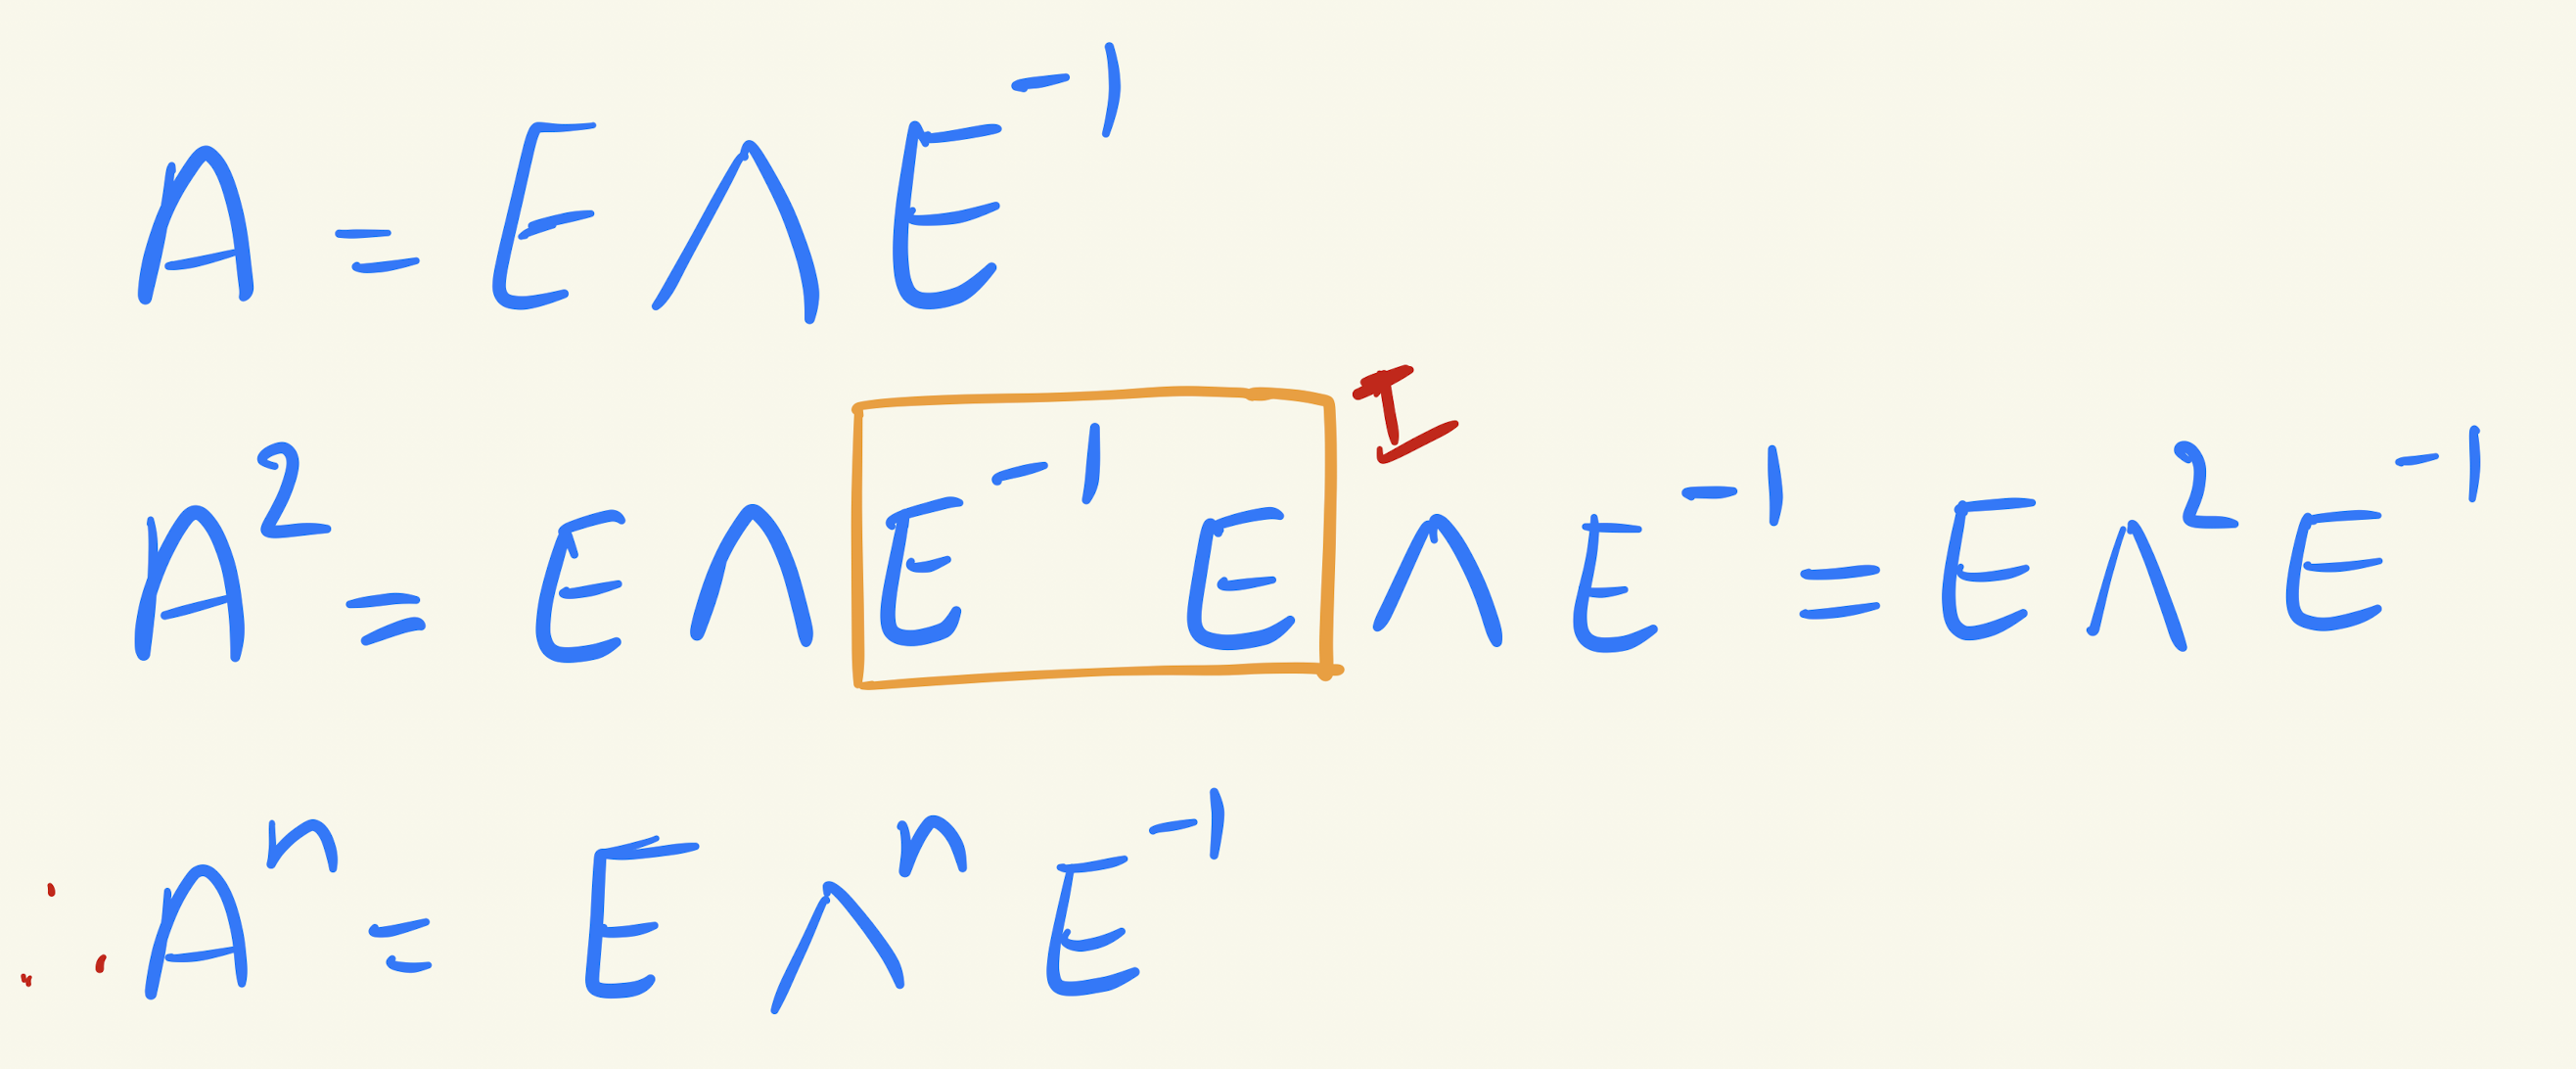 A = E Λ E⁻¹
I
A² = E Λ E⁻¹ E Λ E⁻¹ = E Λ² E⁻¹
∴ Aⁿ = E Λⁿ E⁻¹